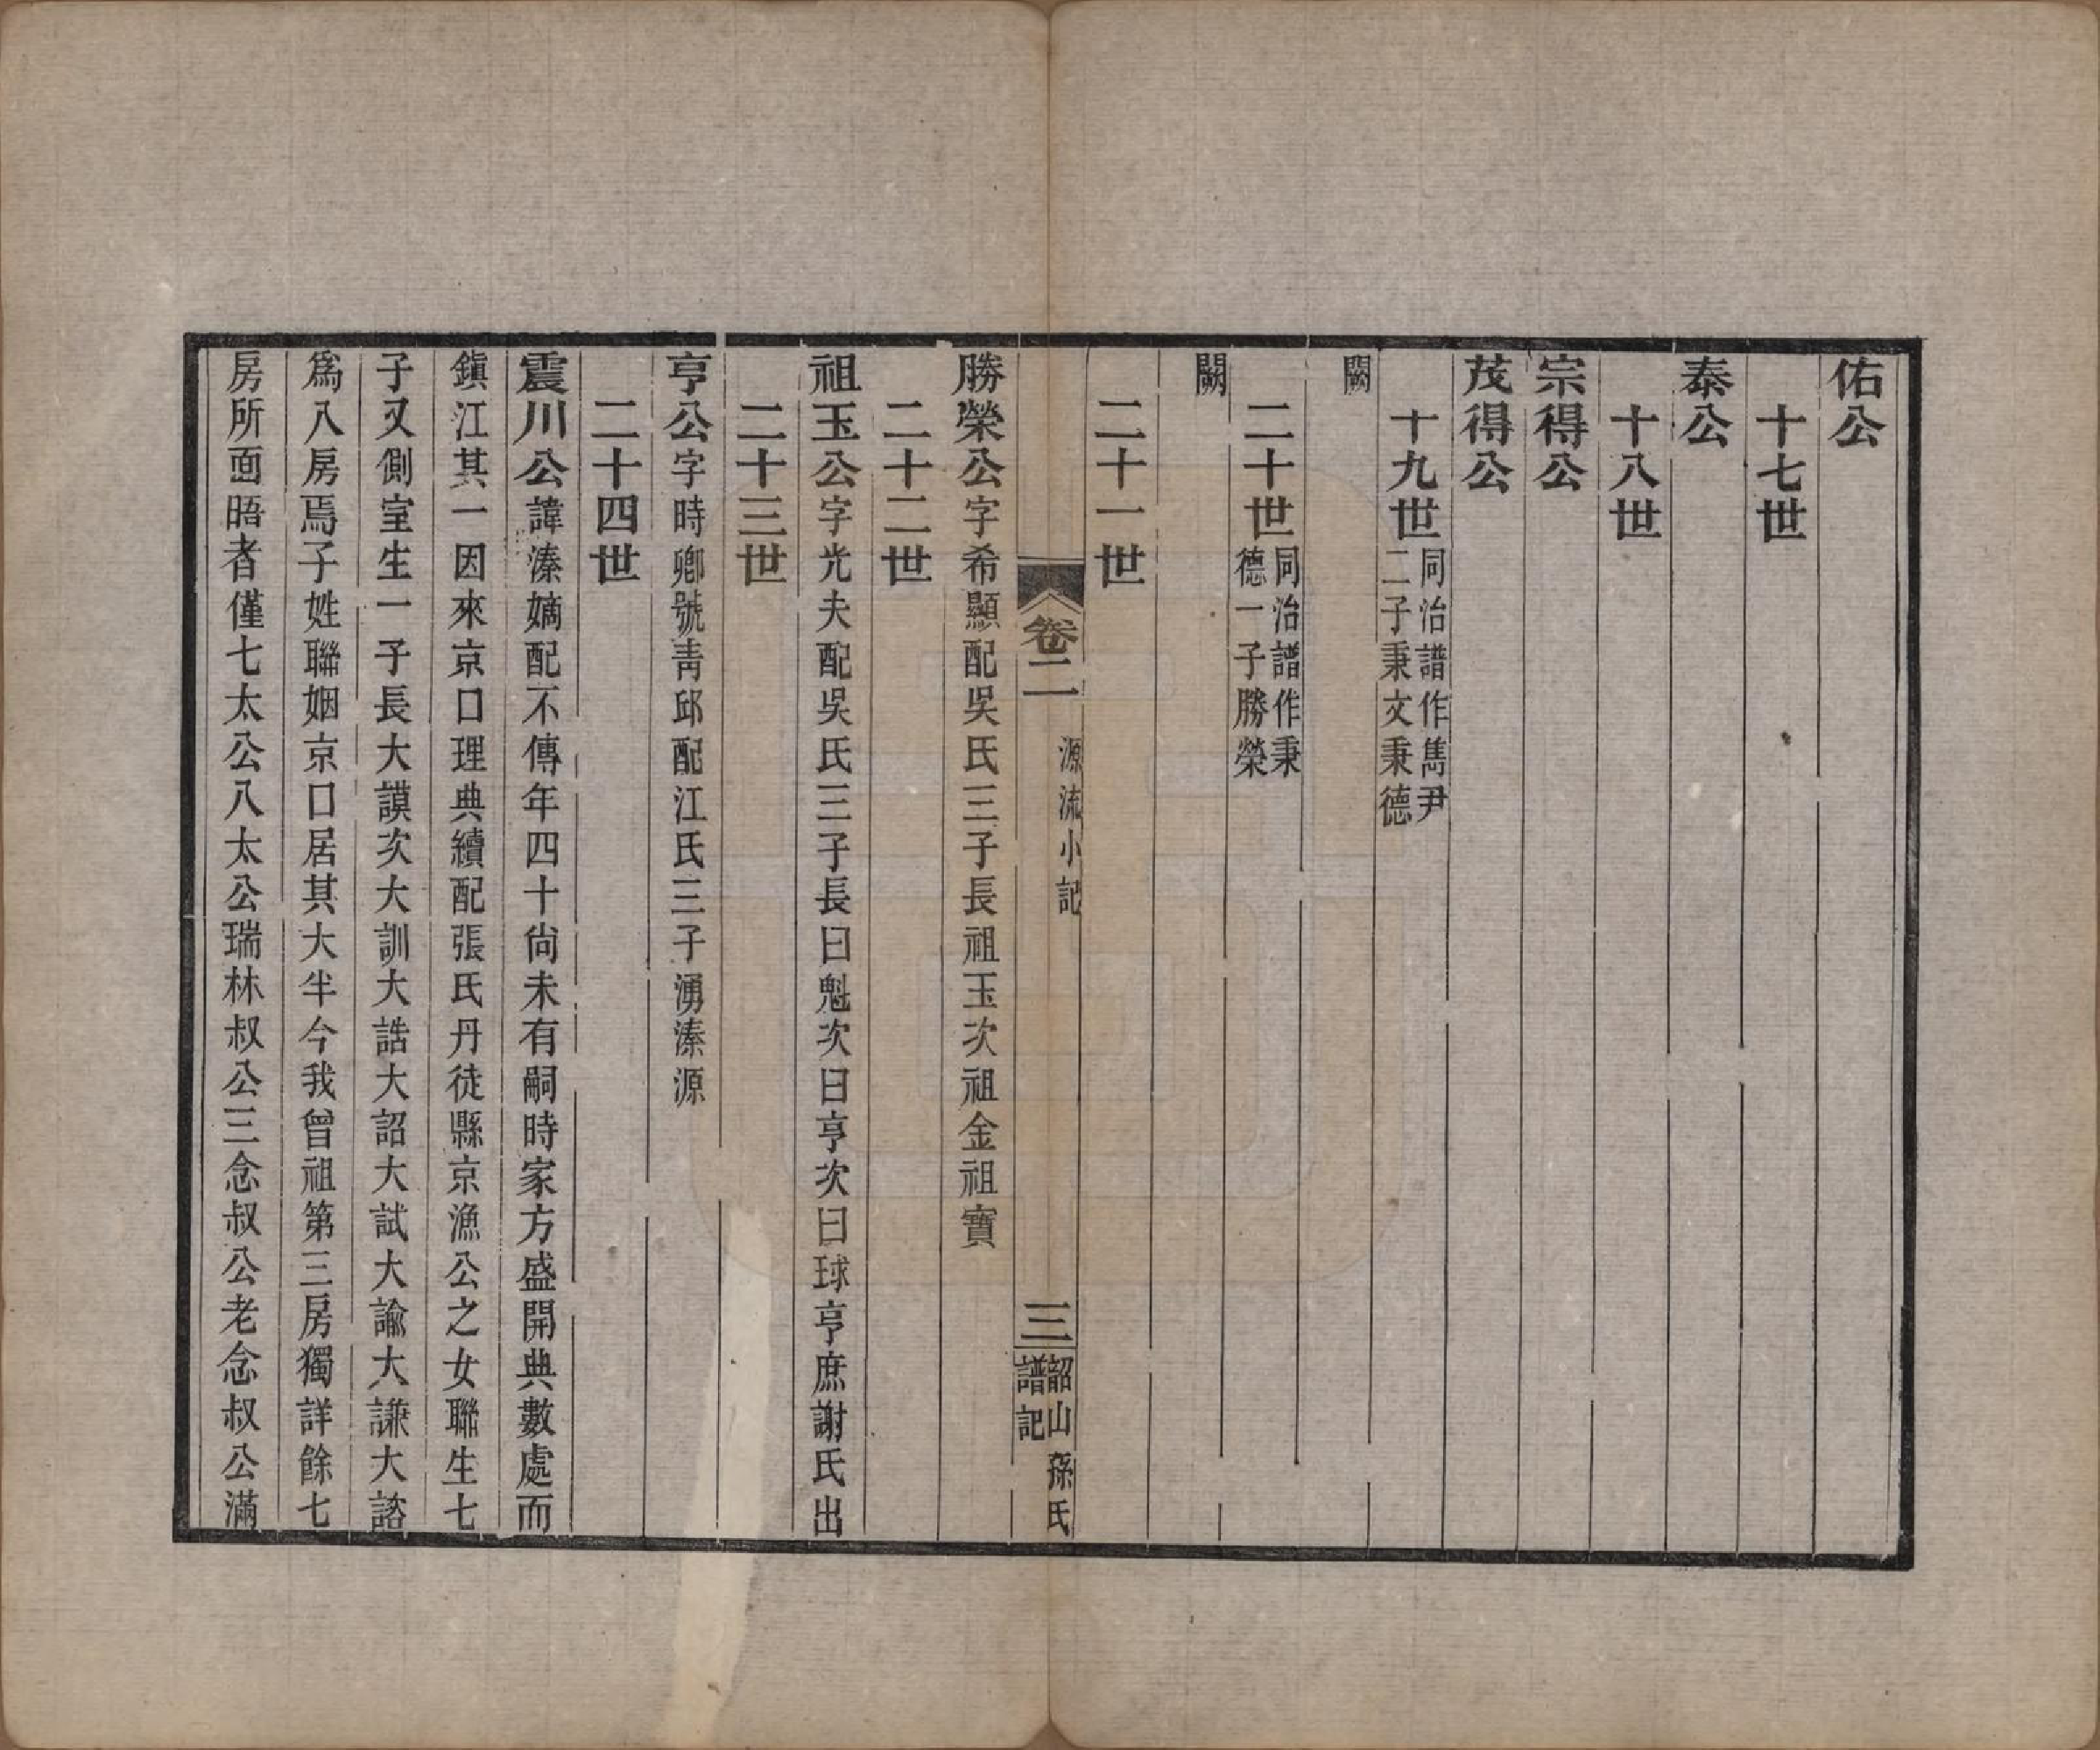 佑公
十七世
泰公
十八世
宗得公
茂得公
十九世 同治譜作雋尹
二子秉文秉德
闕
二十世 同治譜作秉
德一子勝榮
闕
二十一世
卷二 源流小記 三 韶山孫氏
譜記
勝榮公字希顯配吳氏三子長祖玉次祖金祖寶
二十二世
祖玉公字光夫配吳氏三子長曰魁次曰亨次曰球亨庶謝氏出
二十三世
亨公字時卿號靑邱配江氏三子湧溱源
二十四世
震川公諱溱嫡配不傳年四十尙未有嗣時家方盛開典數處而
鎭江其一因來京口理典續配張氏丹徒縣京漁公之女聯生七
子又側室生一子長大謨次大訓大誥大詔大試大諭大謙大諮
爲八房焉子姓聯姻京口居其大半今我曾祖第三房獨詳餘七
房所面晤者僅七太公八太公瑞林叔公三念叔公老念叔公滿